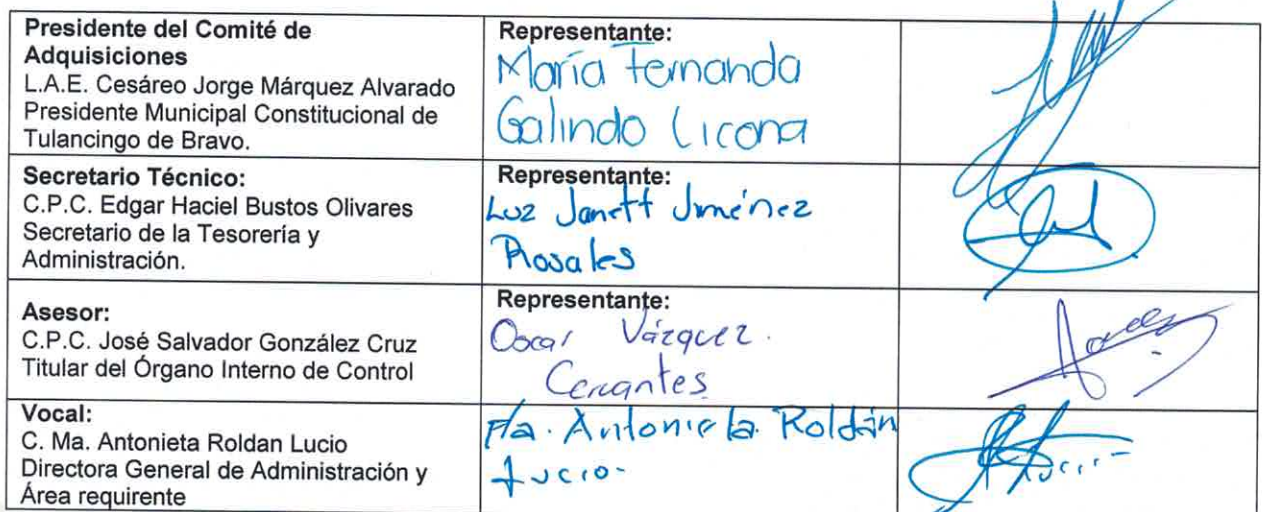 Presidente del Comité de
Adquisiciones
L.A.E. Cesáreo Jorge Márquez Alvarado
Presidente Municipal Constitucional de
Tulancingo de Bravo.
Representante:
María Fernanda
Galindo Licona
Secretario Técnico:
C.P.C. Edgar Haciel Bustos Olivares
Secretario de la Tesorería y
Administración.
Representante:
Luz Janett Jiménez
Rosales
Asesor:
C.P.C. José Salvador González Cruz
Titular del Órgano Interno de Control
Representante:
Oscar Vázquez.
Cervantes
Vocal:
C. Ma. Antonieta Roldan Lucio
Directora General de Administración y
Área requirente
Ma. Antonieta Roldán
Lucio-